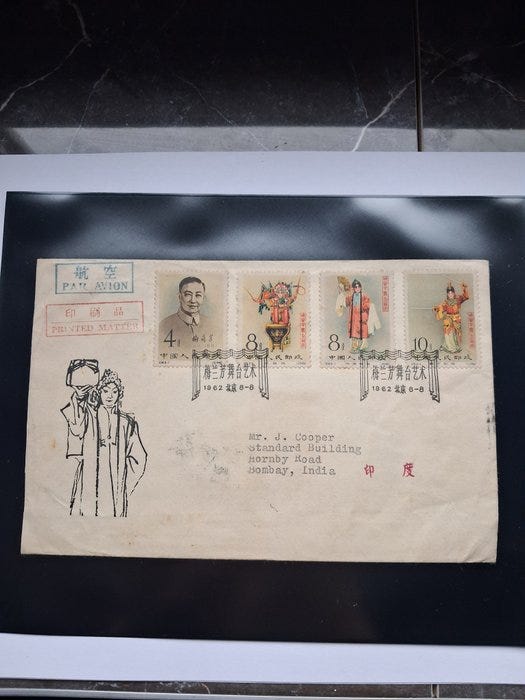 航空
PAR AVION
印刷品
PRINTED MATTER
4分
梅蘭芳
中國人民郵政
8分
中國人民郵政
8分
中國人民郵政
10分
中國人民郵政
梅兰芳舞台艺术
1962 北京 8-8
梅兰芳舞台艺术
1962 北京 8-8
Mr. J. Cooper
Standard Building
Hornby Road
Bombay, India
印 度